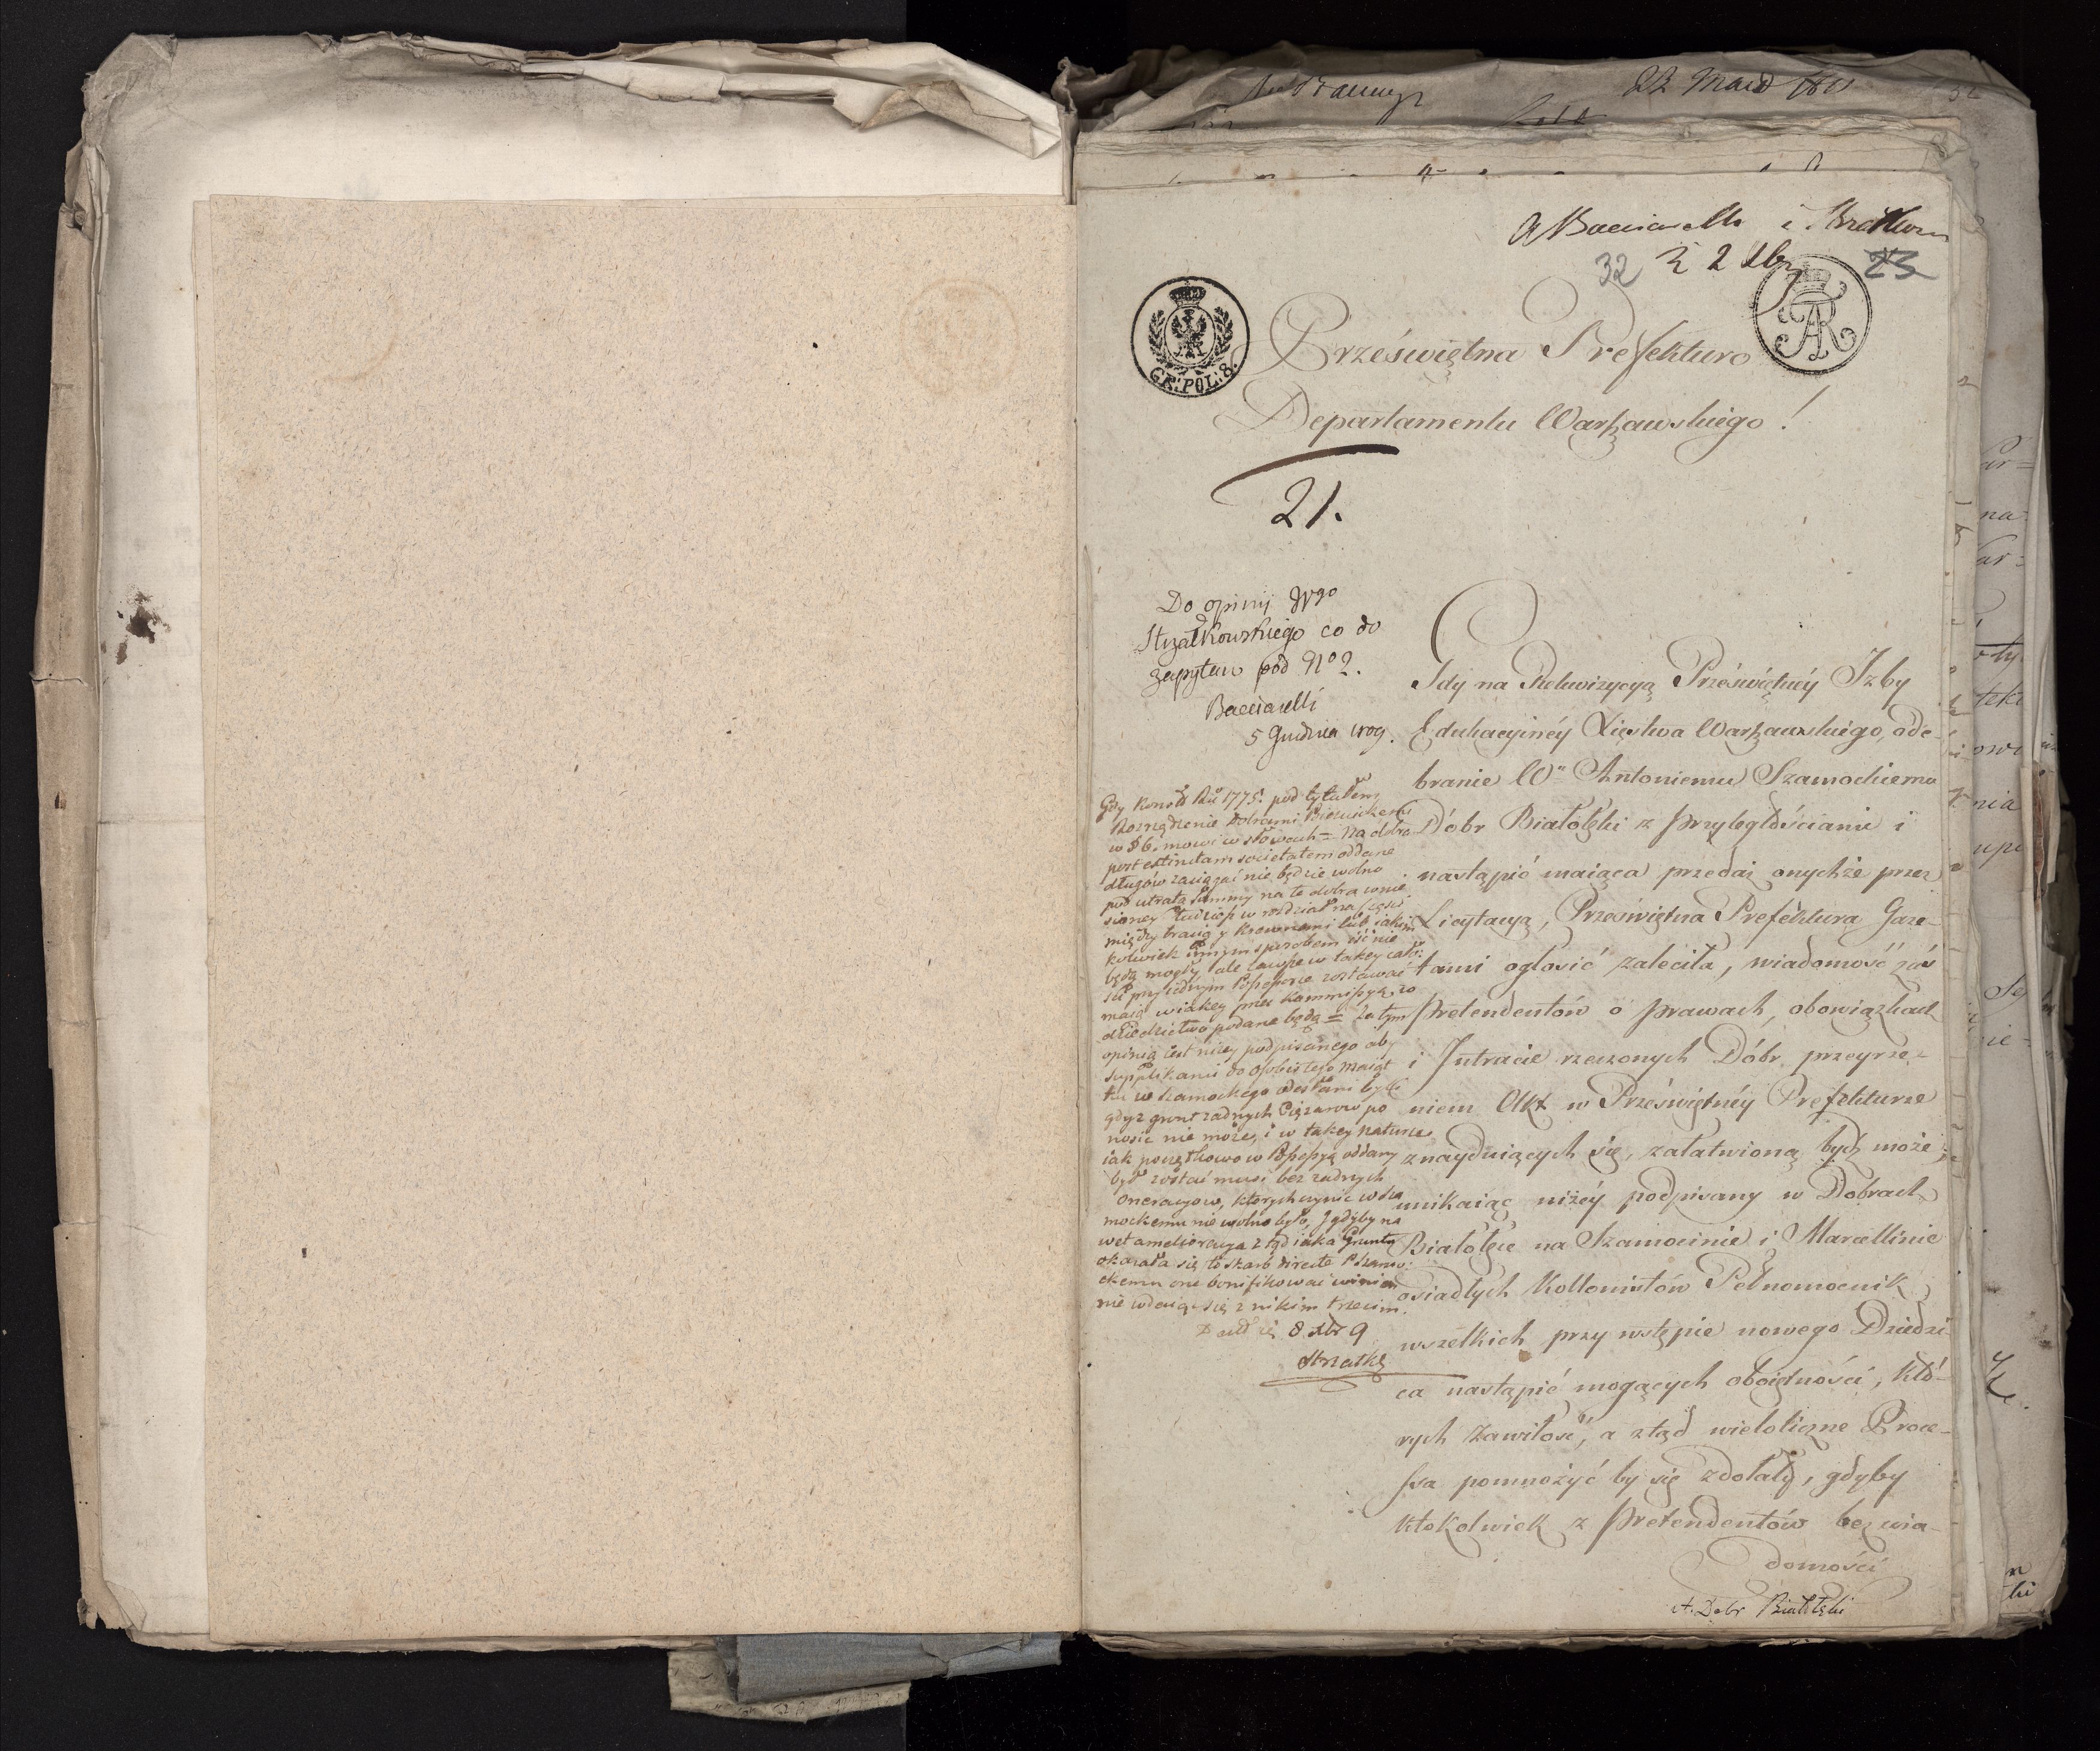 22 Marca
Bacciarelli i
z 2 Xbr
32 23
GR: POL: 8.
Przeświętna Prefekturo
Departamentu Warszawskiego!
21.
Do opinij JWgo
Strzałkowskiego co do
zapytań pod No 2.
Bacciarelli
5 Grudnia 1809.
Gdy Konst: Ru 1775. pod tytułem
Rozrządzenie Dobrami Pojezuickiemi
w § 6. mowi w słowach = Na dobra
post extinctam societatem oddane
długów zaciągać nie będzie wolno
pod utratą Summy na te dobra wnie
sioney tudzież w rozdział na części
między bracią y Krewnemi lub jakim
kolwiek innym sposobem iść nie
będą mogły, ale zawsze w takey cało:
ści przy iednym Possessorze zostawać
maią w iakey przez Kommissyą, w
dziedzictwo podane będą = Za tym
opinią iest niżey podpisanego aby
Supplikanci do osobistego maiąt
ku W Szamockiego odesłani byli
gdyż grunt żadnych Ciężarow po
nosić nie może, i w takey naturze
iak początkowo w Possessyą oddany
był zostać musi bez żadnych
oneracyow, ktorych czynić W Sza
mockiemu nie wolno było, Jgdyby na
wet amelioracya z tąd iaka Gruntu
okazała się, to skarb directe P. Szamo:
ckiemu one bonifikować winien
nie wdaiąc się z nikim trzecim.
8 Xbr 9
Strzałk
Gdy na Rekwizycyą Przeświętnéy Izby
Edukacyinéy Xięstwa Warszawskiego, ode-
branie Wu Antoniemu Szamockiemu
Dóbr Białołęki z przyległościami i
nastąpić maiąca przedaż onychże przez
Licytacyą, Przeświętna Prefektura Gaze-
tami ogłosić zaleciła, wiadomość zaś
Pretendentów o prawach, obowiązkach
i Jntracie rzeczonych Dóbr, przeyrze-
niem Akt w Przeświętnéy Prefekturze
znayduiących się, załatwioną bydź może;
unikaiąc niżéy podpisany w Dobrach
Białołęce na Szamocinie i Marcellinie
osiadłych Kollonistów Pełnomocnik,
wszelkich przy wstępie nowego Dziedzi-
ca nastąpić mogących oboiętności, któ-
rych zawiłość, a ztąd wieloliczne Proce-
ssa pomnożyć by się zdołały, gdyby
ktokolwiek z Pretendentów bez wia-
domości
A. Dobr Białołęki